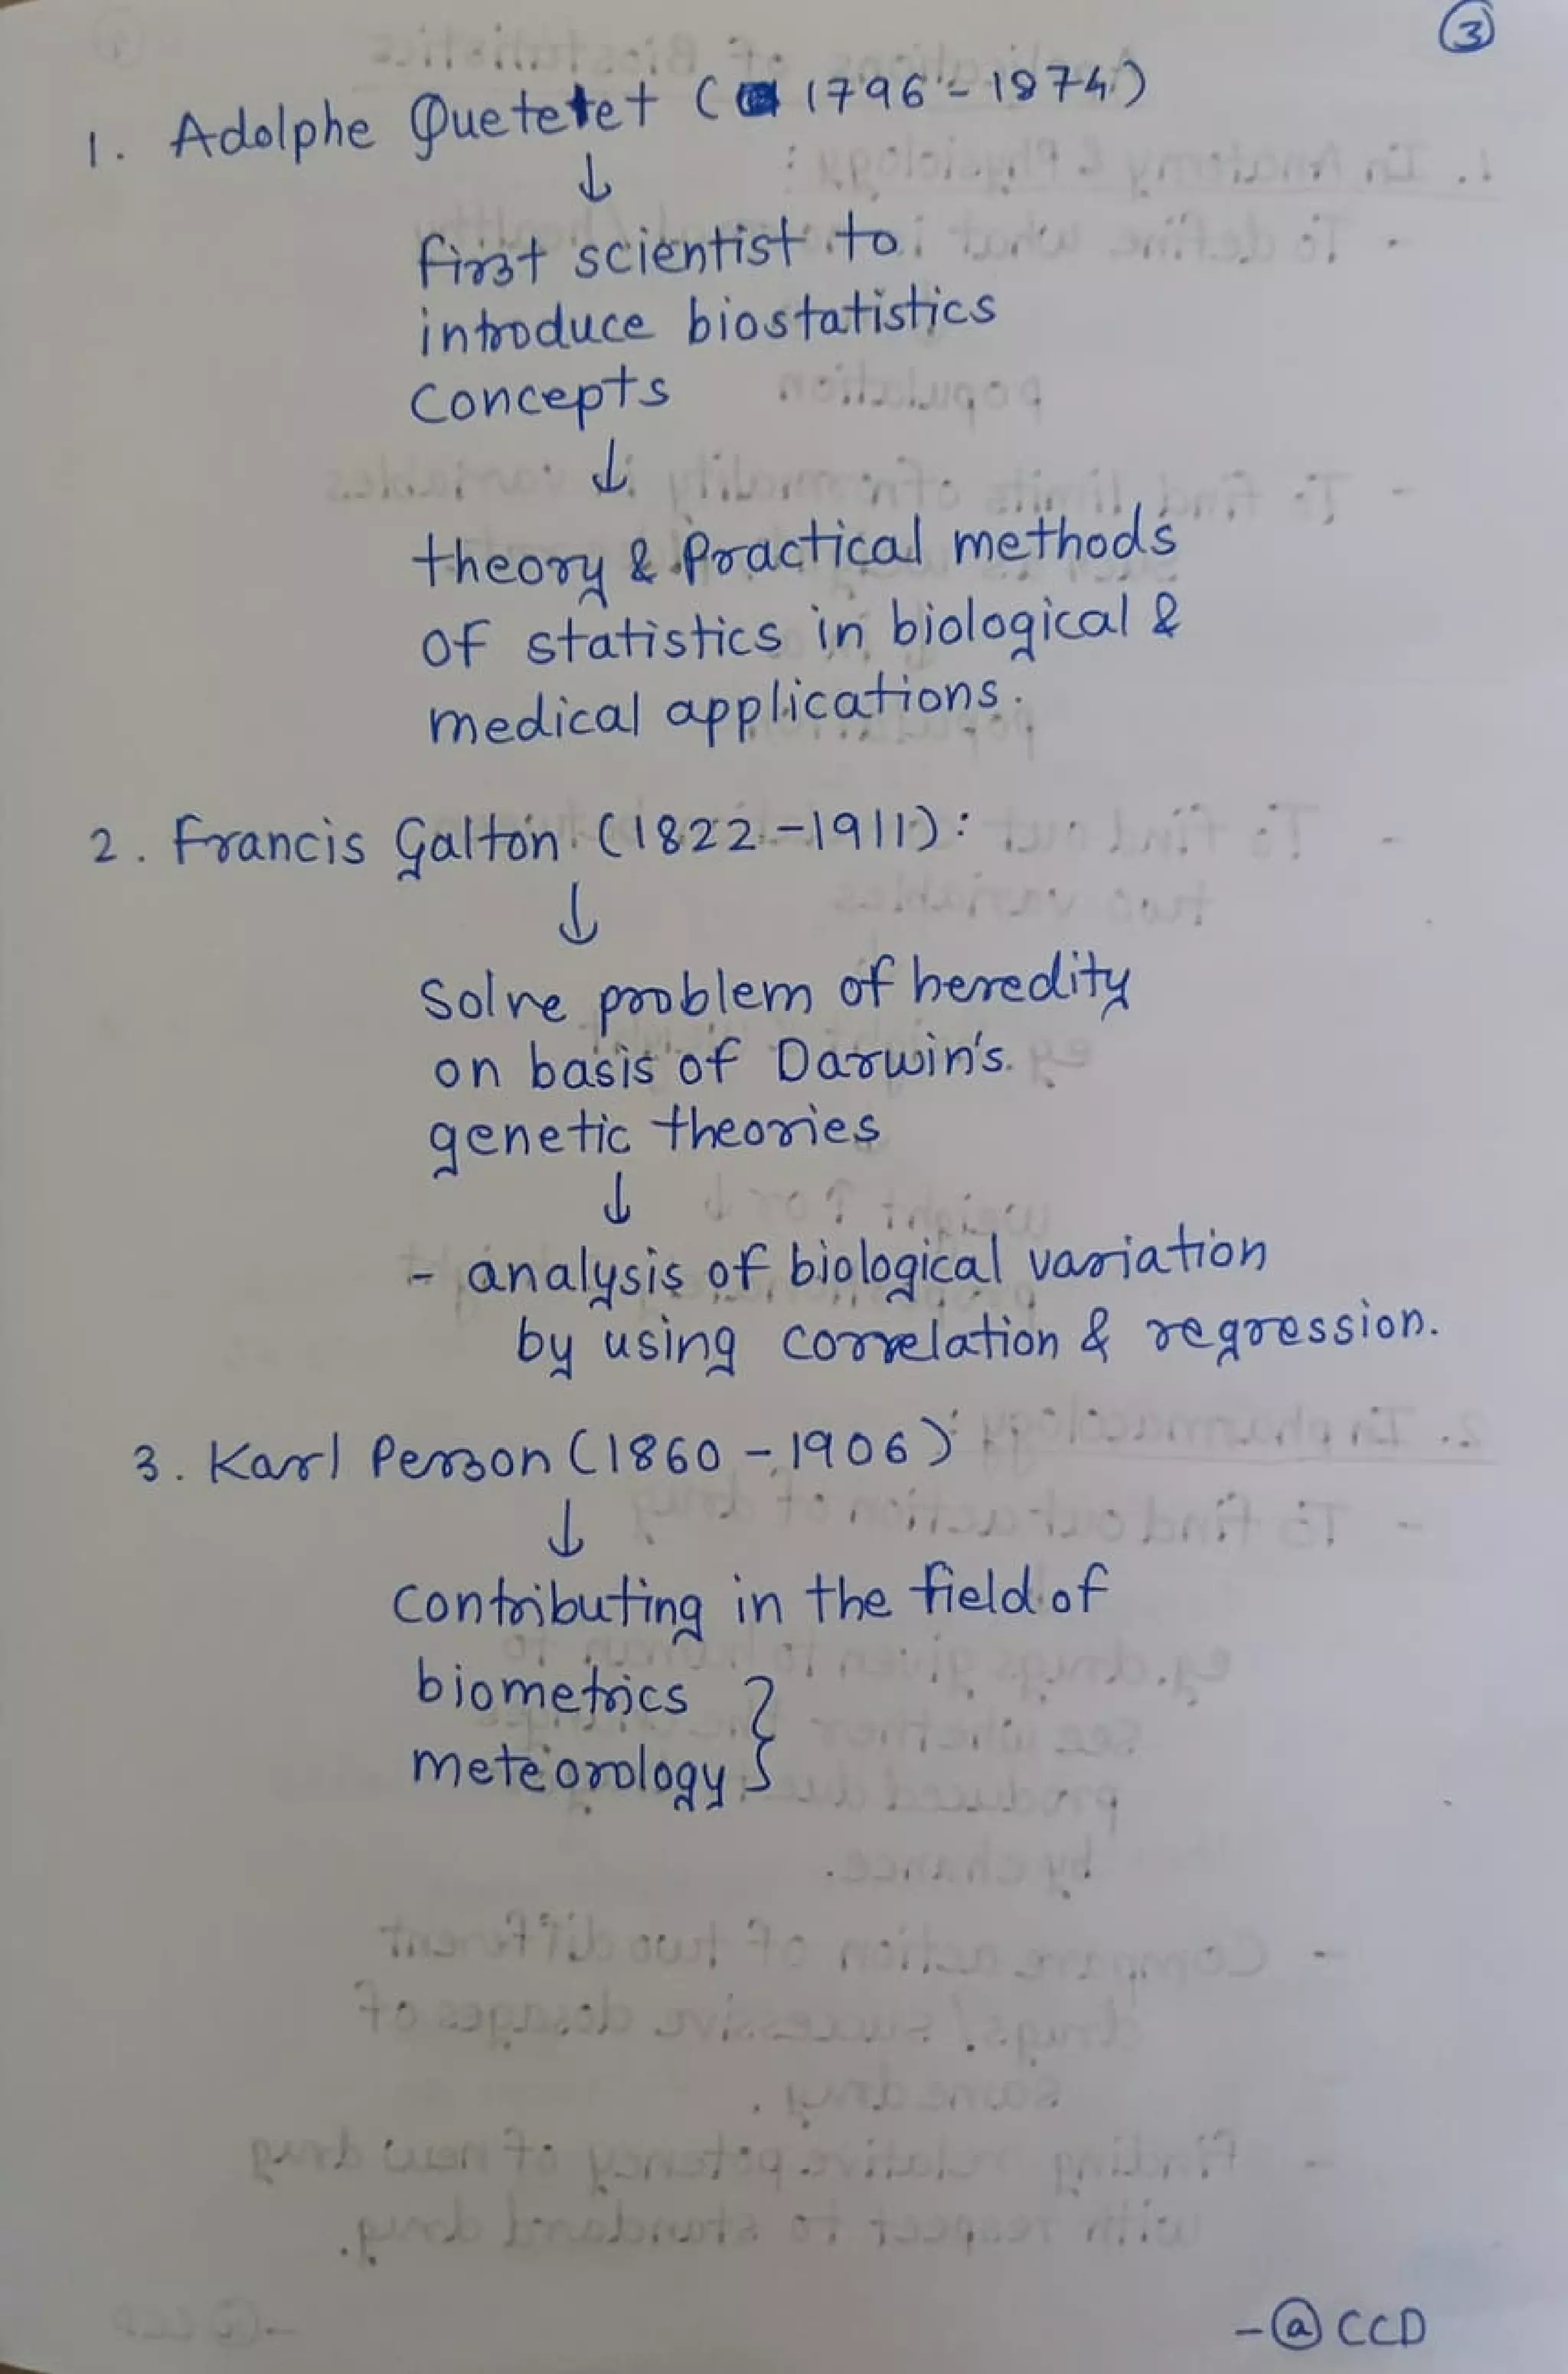 3
1. Adolphe Quetetet (1796-1874)
↓
first scientist to
introduce biostatistics
concepts
↓
theory & Practical methods
of statistics in biological &
medical applications.
2. Francis Galton (1822-1911):
↓
Solve problem of heredity
on basis of Darwin's
genetic theories
↓
- analysis of biological variation
by using correlation & regression.
3. Karl Person (1860-1906)
↓
Contributing in the field of
biometrics }
meteorology
-@CCD